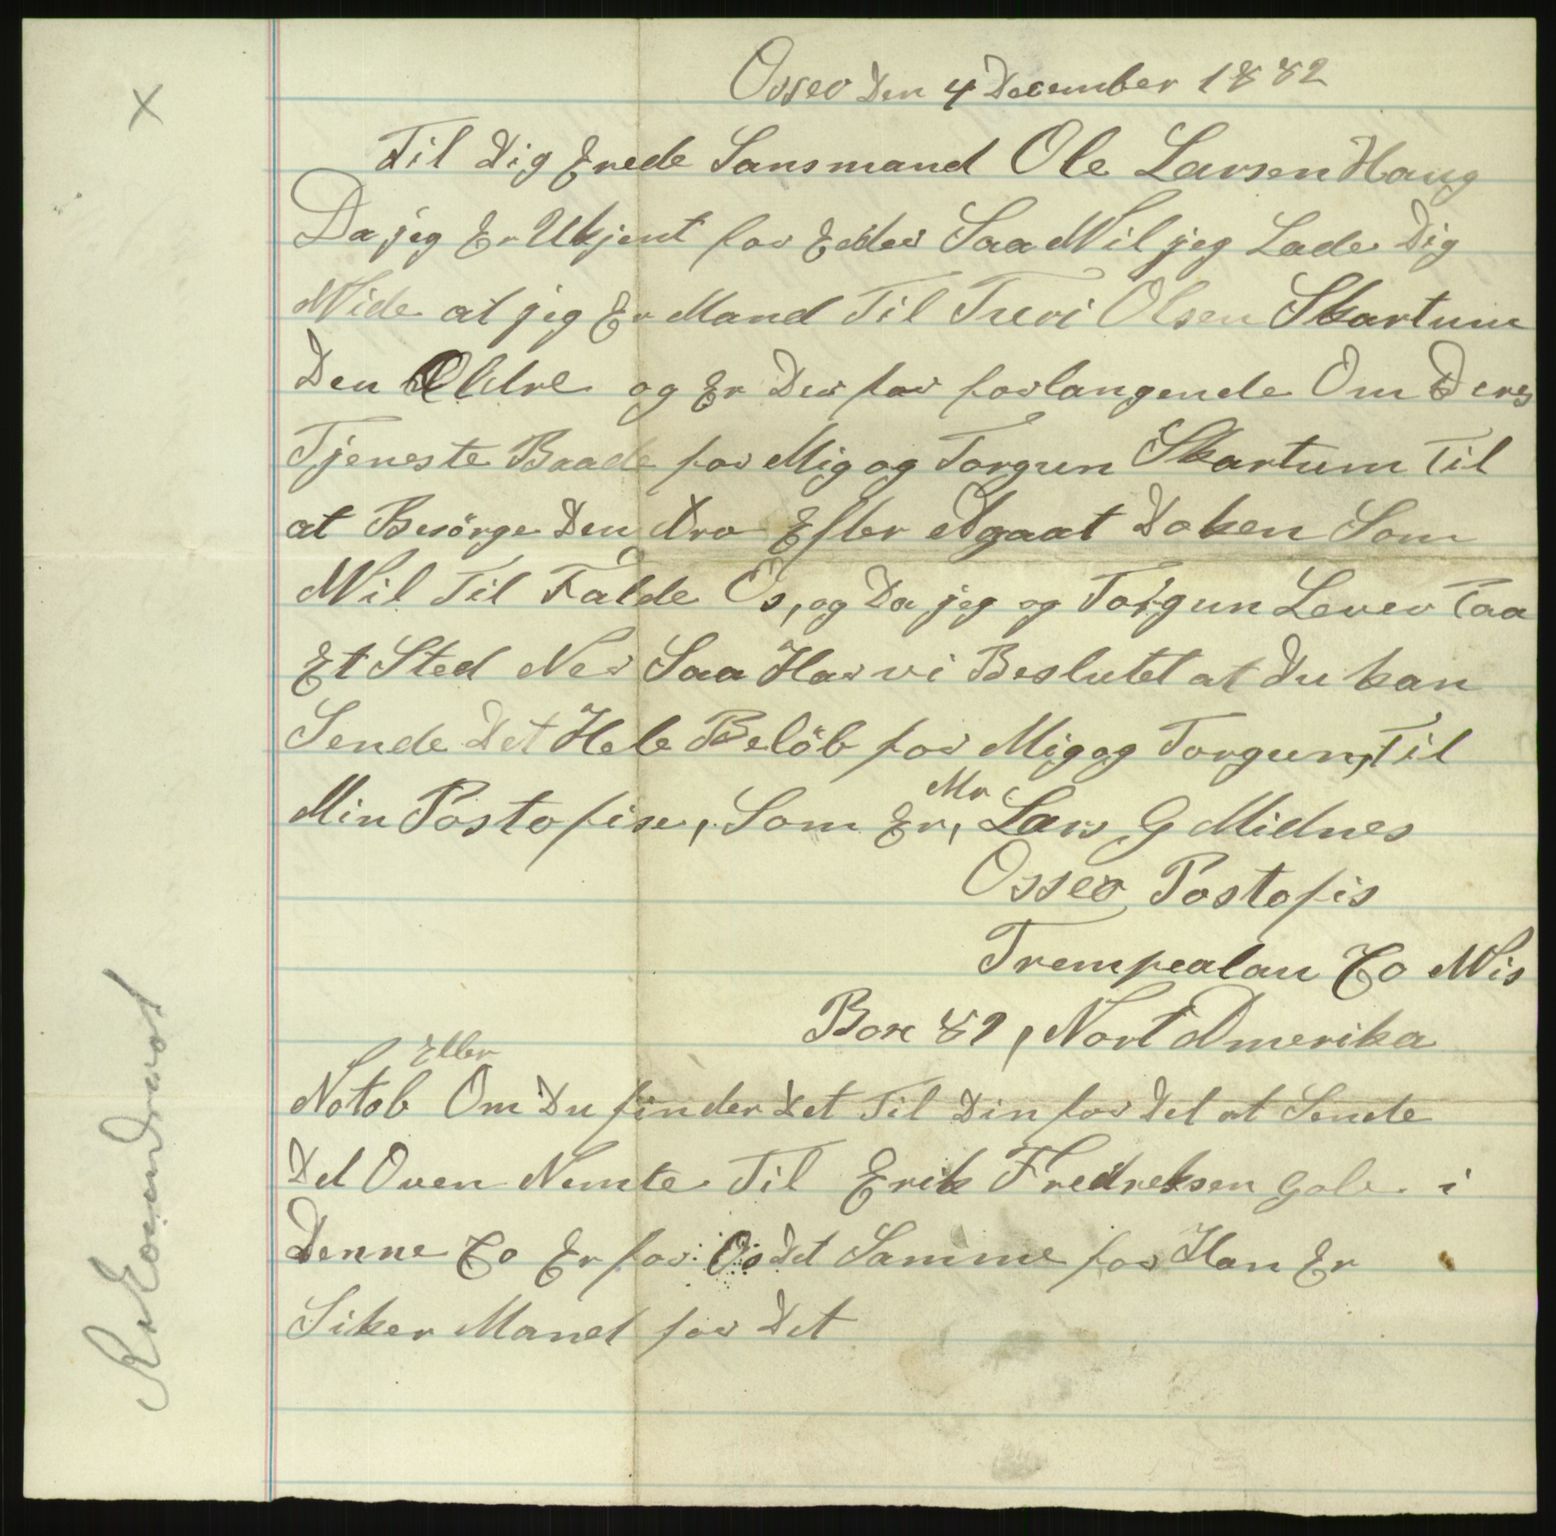 Osseo Den 4 December 1882
Til Dig Erede Lansmand Ole Larsen Haug
Da jeg Er Ukjent for Edder Saa Wil jeg Lade Dig
Wide at jeg Er Mand Til Turi Olsen Skartum
Den Eldre og Er Der for forlangende Om Ders
Tjeneste Baade for Mig og Torgun Skartum Til
at Besörge Den Arv Efter Afgaat Haken Som
Wil Til Falde Os, og Da jeg og Torgun Lever Paa
Et Sted Ner Saa Har vi Beslutet at Du kan
Sende Det Hele Belöb for Mig og Torgun, Til
Min Postofise, Som Er, Mr Lars G Midnes
Osseo Postofis
Trempealau Co Wis
Box 89, Nort Amerika
Notab Eller Om Du finder Det Til Din for Del at Sende
Det Oven Nemte Til Erik Fredreksen Gole i
Denne Co Er for Os Det Samme for Han Er
Siker Mand for Det
x